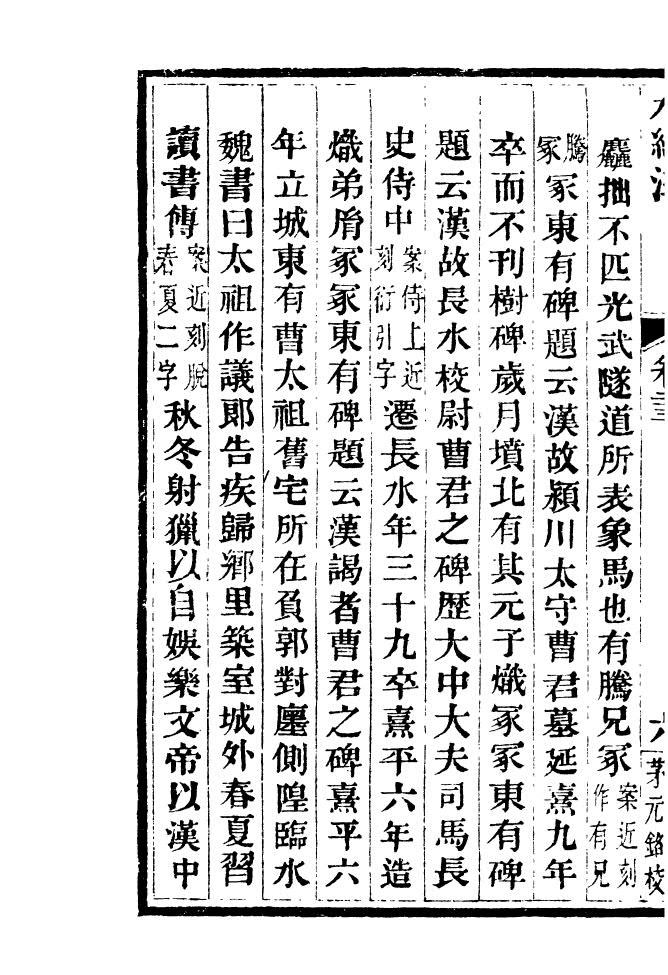 麤拙不匹光武隧道所表象馬也有騰兄冢案近刻作有兄
騰冢冢東有碑題云漢故潁川太守曹君墓延熹九年
卒而不刊樹碑歲月墳北有其元子熾冢冢東有碑
題云漢故長水校尉曹君之碑歷大中大夫司馬長
史侍中案侍上近刻衍引字遷長水年三十九卒熹平六年造
熾弟𦙍冢冢東有碑題云漢謁者曹君之碑熹平六
年立城東有曹太祖舊宅所在負郭對廛側隍臨水
魏書曰太祖作議郎告疾歸鄉里築室城外春夏習
讀書傳案近刻脫春夏二字秋冬射獵以自娛樂文帝以漢中
六
茅元銘校